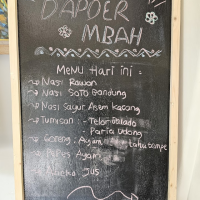 D'APOER
MBAH
MENU Hari ini :
→ Nasi Rawon
→ Nasi SOTO Bandung
→ Nasi Sayur Asem Kacang
→ Tumisan : - Telor Balado
- Paria Udang
→ Goreng : Ayam
Tahu
→ Pepes Ayam
JUS